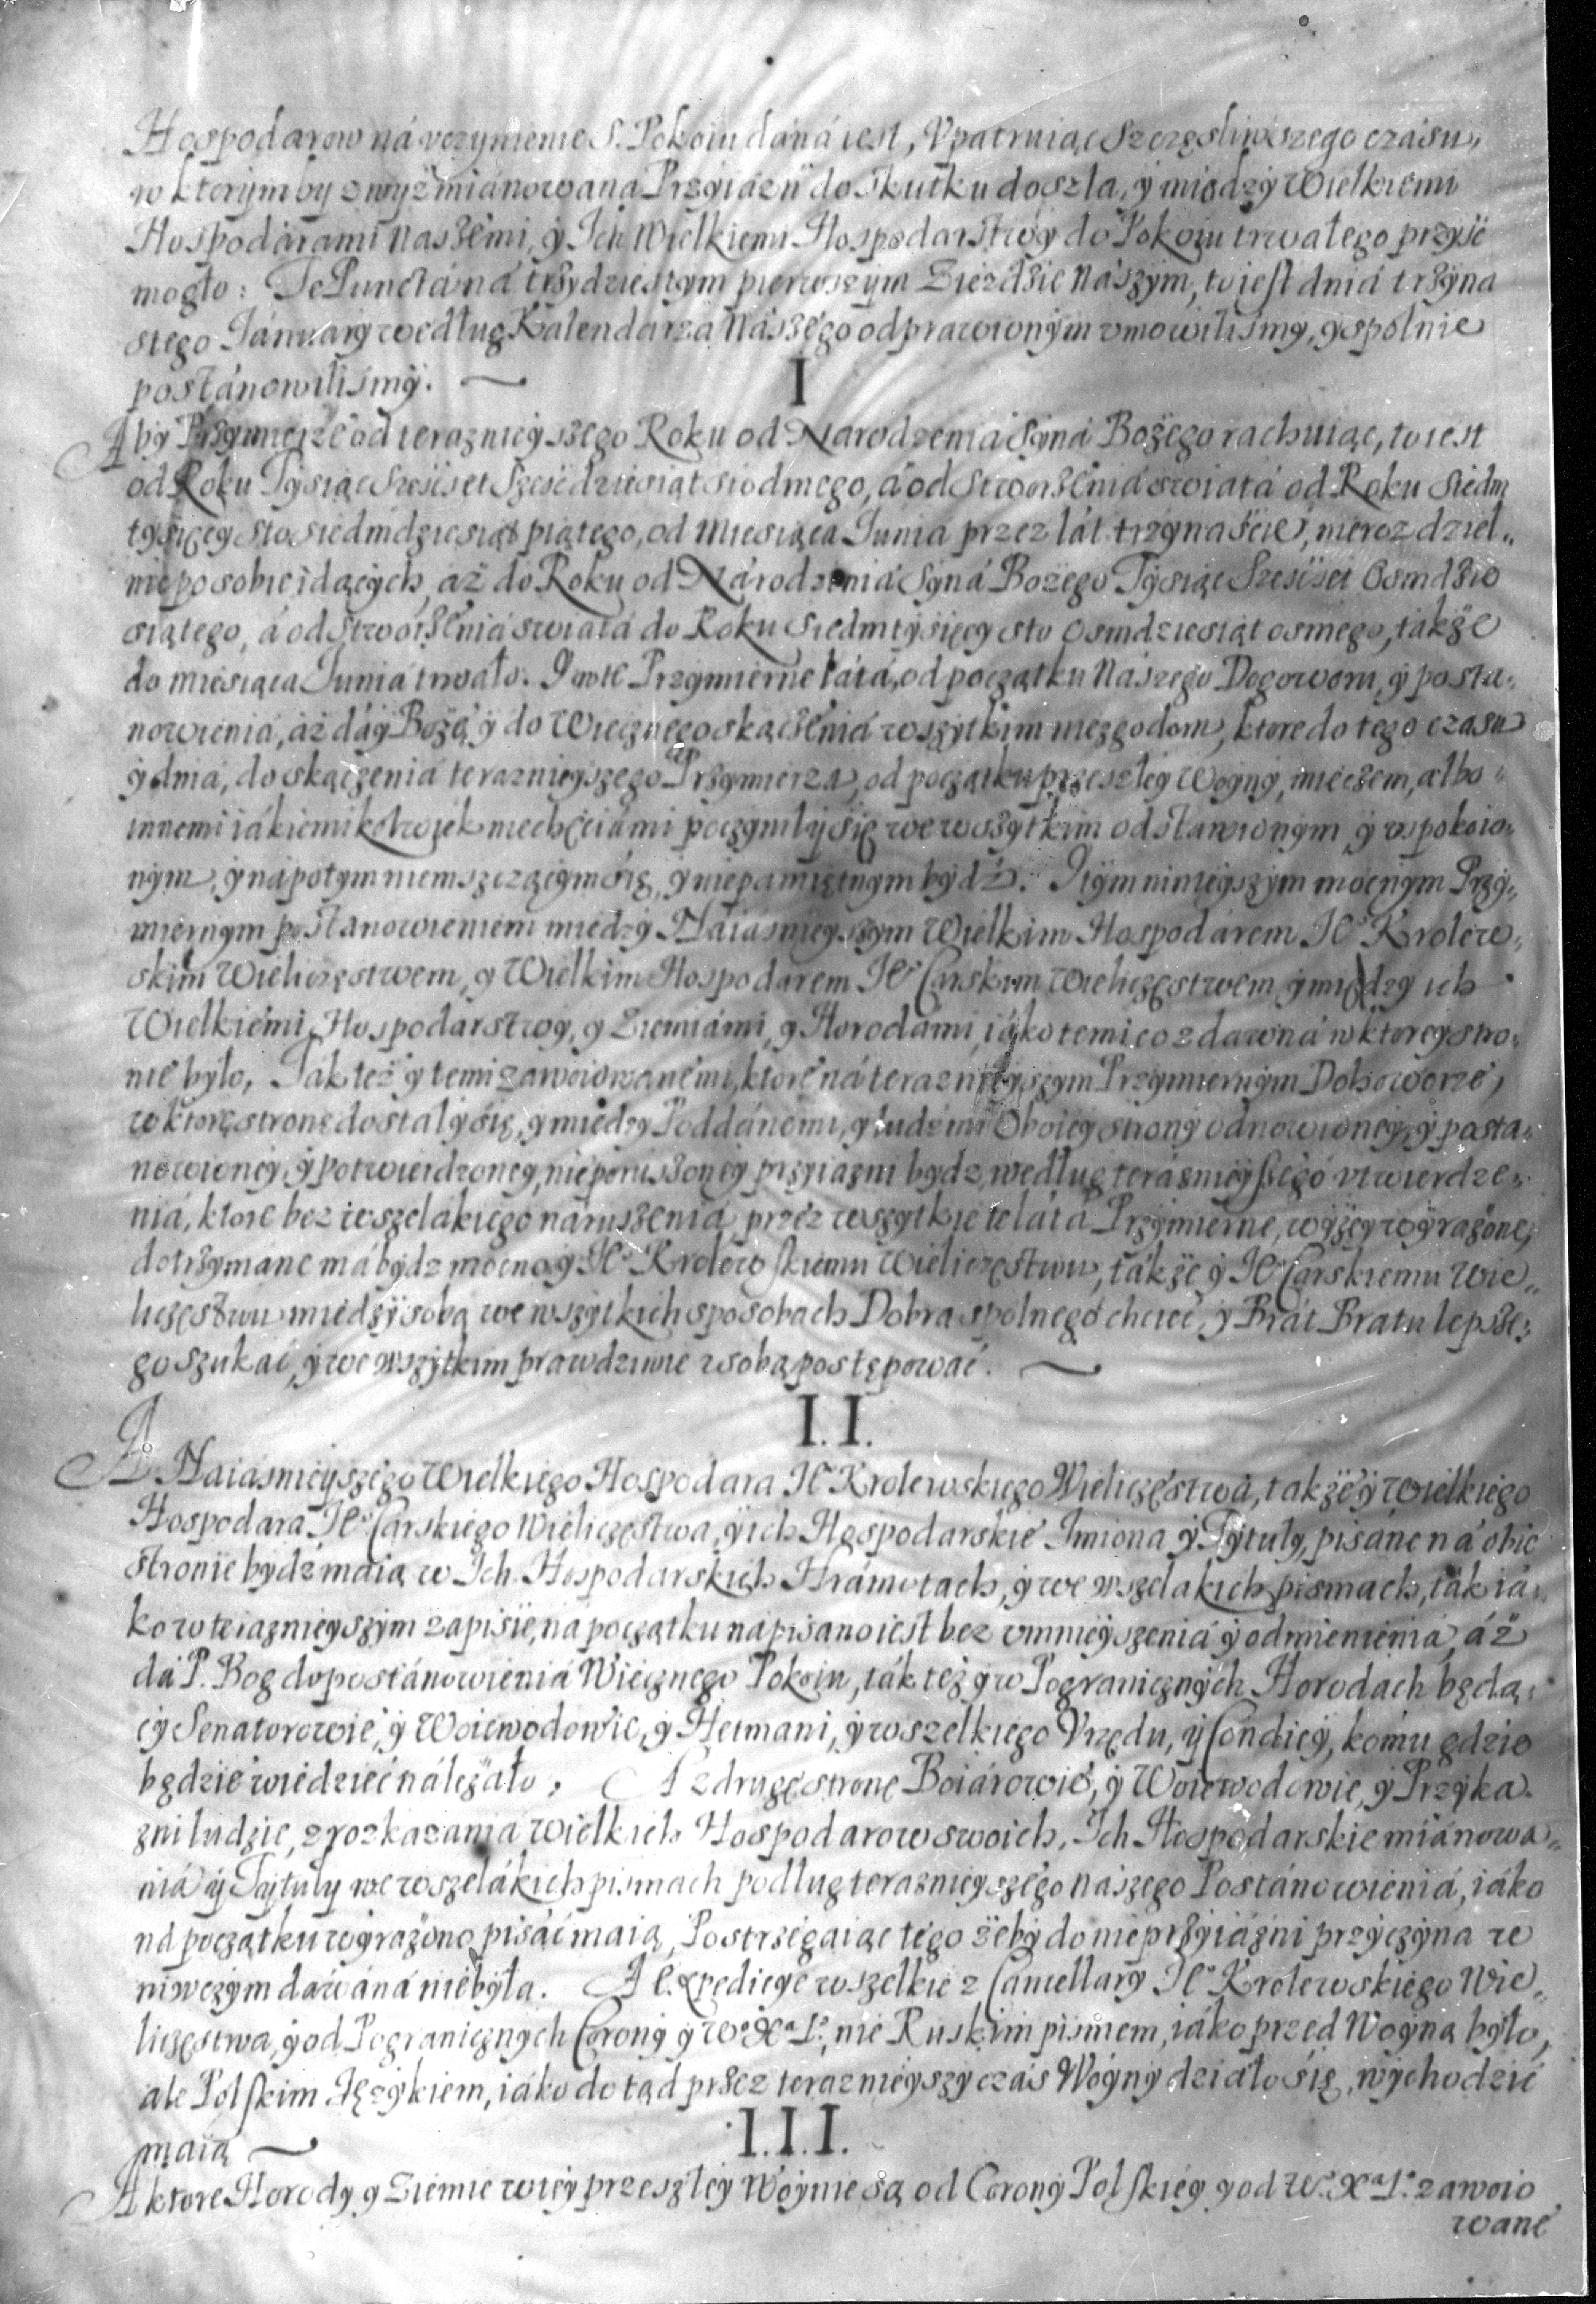 Hospodarow ná vczynienie S. Pokoiu daná iest, Vpatruiąc Szczęśliwszego czásu,
w ktorymby zwyż miánowana Przyiázń do skutku doszła, ÿ miedzÿ Wielkiemi
Hospodárami Naszemi, ÿ Ich Wielkiemi Hospodarstwÿ do Pokoiu trwałego przÿść
mogło: Te Puncta ná trzydziestym pierwszym Zieździe Nászÿm, to iest dniá trzÿna
stego Jánuarÿ według Kalendarza Nászego odprawionÿm vmowiliśmÿ, ÿ spolnie
postánowiliśmÿ.
I
Abÿ Przÿmierze od teraznieÿszego Roku od Narodzenia Sÿná Bożego rachuiąc, to iest
od Roku Tÿsiąc Sześćset Sześćdziesiąt siodmego, á od Stworzeniá swiatá od Roku Siedm
tÿsięcÿ sto siedmdziesiąt piątego, od Miesiąca Junia przez lát trzÿnaście, nierozdziel„
nie po sobie idącÿch, aż do Roku od Národzeniá Sÿná Bożego Tÿsiąc Sześćset Osmdzie
siątego, á od Stworzeniá swiatá do Roku Siedmtÿsięcÿ sto Osmdziesiąt osmego, także
do miesiąca Juniá trwało. I w te Przÿmierne látá, od początku Nászego Dogoworu, ÿ posta„
nowieniá, áż dáÿ Boże ÿ do Wiecznego skączeniá wszÿtkim niezgodom, ktore do tego czasu
ÿ dniá, do skączenia teraznieÿszego Przÿmierza, od początku przeszłeÿ Woÿnÿ, mieczem, albo„
innemi iákiemikolwiek niechęciámi poczÿniłÿ się we wszÿtkim odstawionÿm ÿ vspokoio„
nÿm, ÿ nápotÿm niemszczącÿmśię, ÿ niepamiętnÿm bÿdź. I tÿm ninieÿszÿm mocnÿm Przÿ„
miernÿm postanowieniem miedzÿ Náiásnieÿszÿm Wielkim Hospodárem Je° Krolew„
skim Wieliczestwem, ÿ Wielkim Hospodarem Je° Carskim Wieliczęstwem ÿ miedzÿ ich
Wielkiemi Hospodarstwÿ, ÿ Ziemiámi, ÿ Horodámi, iáko temi co zdawná w ktoreÿ stro„
nie bÿło, Tak też ÿ temi zawoiowanemi, ktore ná teraznieÿszÿm Przÿmiernÿm Dohoworze,
w ktorą stronę dostałÿ się, ÿ miedzÿ Poddánemi, ÿ ludźmi Oboieÿ stronÿ odnowioneÿ, ÿ posta„
nowioneÿ, ÿ potwierdzoneÿ, nieporuszoneÿ przÿiazni bÿdz, według terásnieÿszego vtwierdze„
niá, ktore bez wszelákiego náruszenia przez wszÿtkie te látá Przÿmierne, wÿżeÿ wÿrażone,
dotrzÿmáne má bÿdz mocno, ÿ Je° Krolewskiemu Wieliczęstwu, tákże ÿ Je° Carskiemu Wie„
liczęstwu miedzÿ sobą we wszÿtkich sposobach Dobra spolnego chcieć, ÿ Brát Bratu lepsze„
go szukáć, ÿ we wszÿtkim prawdziwie z sobą postępowáć.
I.I.
A Naiásnieÿszego Wielkiego Hospodara Je° Krolewskiego Wieliczęstwá, także ÿ Wielkiego
Hospodara Je° Carskiego Wieliczęstwa, ÿ ich Hospodarskie Imiona ÿ Tÿtułÿ, pisáne ná obie
stronie bÿdź maią w Ich Hospodarskich Hrámotach, ÿ we wszelakich pismach, ták iá„
ko w teraznieÿszÿm zapisie, ná początku nápisano iest bez vmnieÿszeniá ÿ odmienienia, áż
dá P. Bog do postánowieniá Wiecznego Pokoiu, ták też ÿ w Pogranicznÿch Horodach będą„
cÿ Senatorowie, ÿ Woiewodowie, ÿ Hetmani, ÿ wszelkiego Vrzędu, ÿ Condicÿ, komu gdzie
będzie wiedzieć náleżáło, A z drugą stronę Boiárowie, ÿ Woiewodowie, ÿ Przÿka„
zni ludzie, z rozkazania Wielkich Hospodarow swoich, Ich Hospodarskie miánowa„
niá ÿ Tÿtułÿ we wszelákich pismach podług teraznieÿszego Nászego Postánowieniá, iáko
ná początku wÿrażono pisáć maią, Postrzegaiąc tego żebÿ do nieprzÿiázni przÿczÿna w
niwczÿm dawáná niebÿła. A Expedicÿe wszelkie z Cancellarÿ Je° Krolewskiego Wie„
liczęstwa, ÿ od Pogranicznÿch Coronÿ ÿ W° X° L°, nie Ruskim pismem, iáko przed Woÿną bÿło,
ale Polskim Językiem, iáko dotąd przez teraznieÿszÿ czás Woÿnÿ działo się, wÿchodzić
maią
I.I.I.
A ktore Horodÿ ÿ Ziemie w teÿ przeszłeÿ Woÿnie są od Coronÿ Polskieÿ ÿ od W° X° L° zawoio
wane